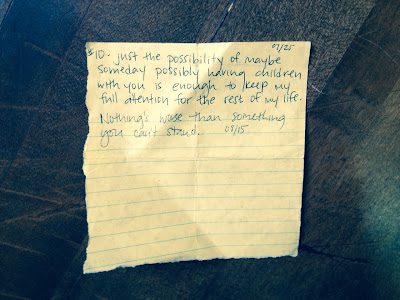 07/25
#10. just the possibility of maybe
someday possibly having children
with you is enough to keep my
full attention for the rest of my life.
Nothing's worse than something
you can't stand. 08/15